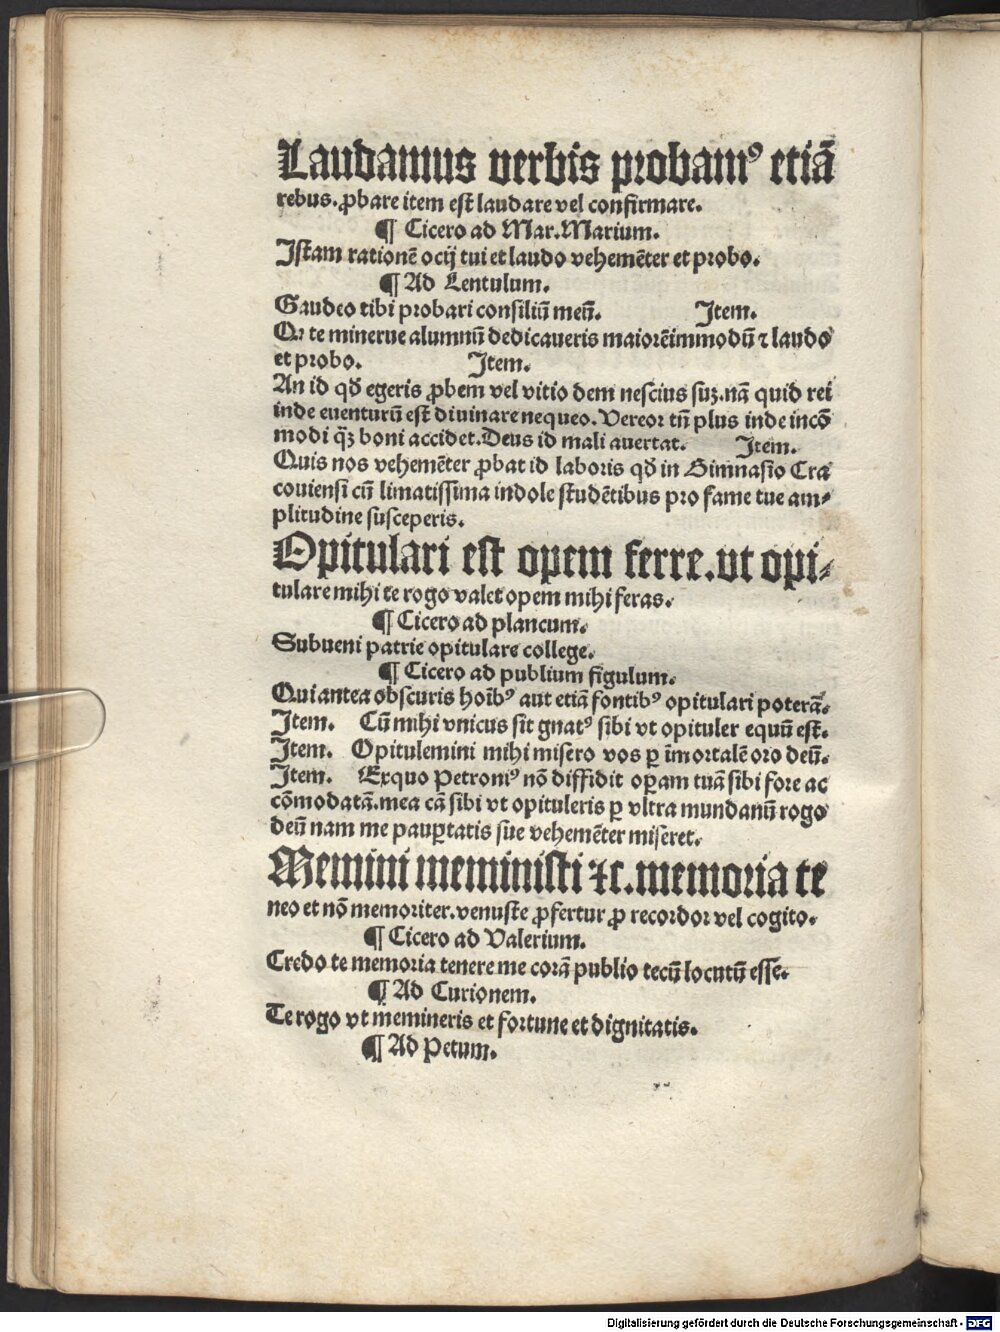 Laudamus verbis probamꝰ etiã
rebus. ꝓbare item est laudare vel confirmare.
¶ Cicero ad Mar. Marium.
Istam rationẽ ocij tui et laudo vehemẽter et probo.
¶ Ad Lentulum.
Gaudeo tibi probari consiliũ meũ. Item.
Qꝛ te minerue alumnũ dedicaueris maiorẽimmodũ ⁊ laudo
et probo. Item.
An id qđ egeris ꝓbem vel vitio dem nescius suꝫ. nã quid rei
inde euenturũ est diuinare nequeo. Vereor tñ plus inde incõ
modi q̃ꝫ boni accidet. Deus id mali auertat. Item.
Quis nos vehemẽter ꝓbat id laboris qđ in Gimnasio Cra
couiensi cũ limatissima indole studẽtibus pro fame tue am⸗
plitudine susceperis.
Opitulari est opem ferre. ut opi⸗
tulare mihi te rogo valet opem mihi feras.
¶ Cicero ad plancum.
Subueni patrie opitulare college.
¶ Cicero ad publium figulum.
Qui antea obscuris hoĩbꝰ aut etiã fontibꝰ opitulari poterã.
Item. Cũ mihi vnicus sit gnatꝰ sibi vt opituler equũ est.
Item. Opitulemini mihi misero vos ꝑ ĩmortalẽ oro deũ.
Item. Exquo Petroniꝰ nõ diffidit oꝑam tuã sibi fore ac
cõmodatã. mea cã sibi vt opituleris ꝑ vltra mundanũ rogo
deũ nam me pauꝑtatis sue vehemẽter miseret.
Memini meministi ⁊c. memoria te
neo et nõ memoriter. venuste ꝓfertur ꝓ recordor vel cogito.
¶ Cicero ad Valerium.
Credo te memoria tenere me corã publio tecũ locutũ esse.
¶ Ad Curionem.
Te rogo vt memineris et fortune et dignitatis.
¶ Ad Petum.
Digitalisierung gefördert durch die Deutsche Forschungsgemeinschaft - DFG